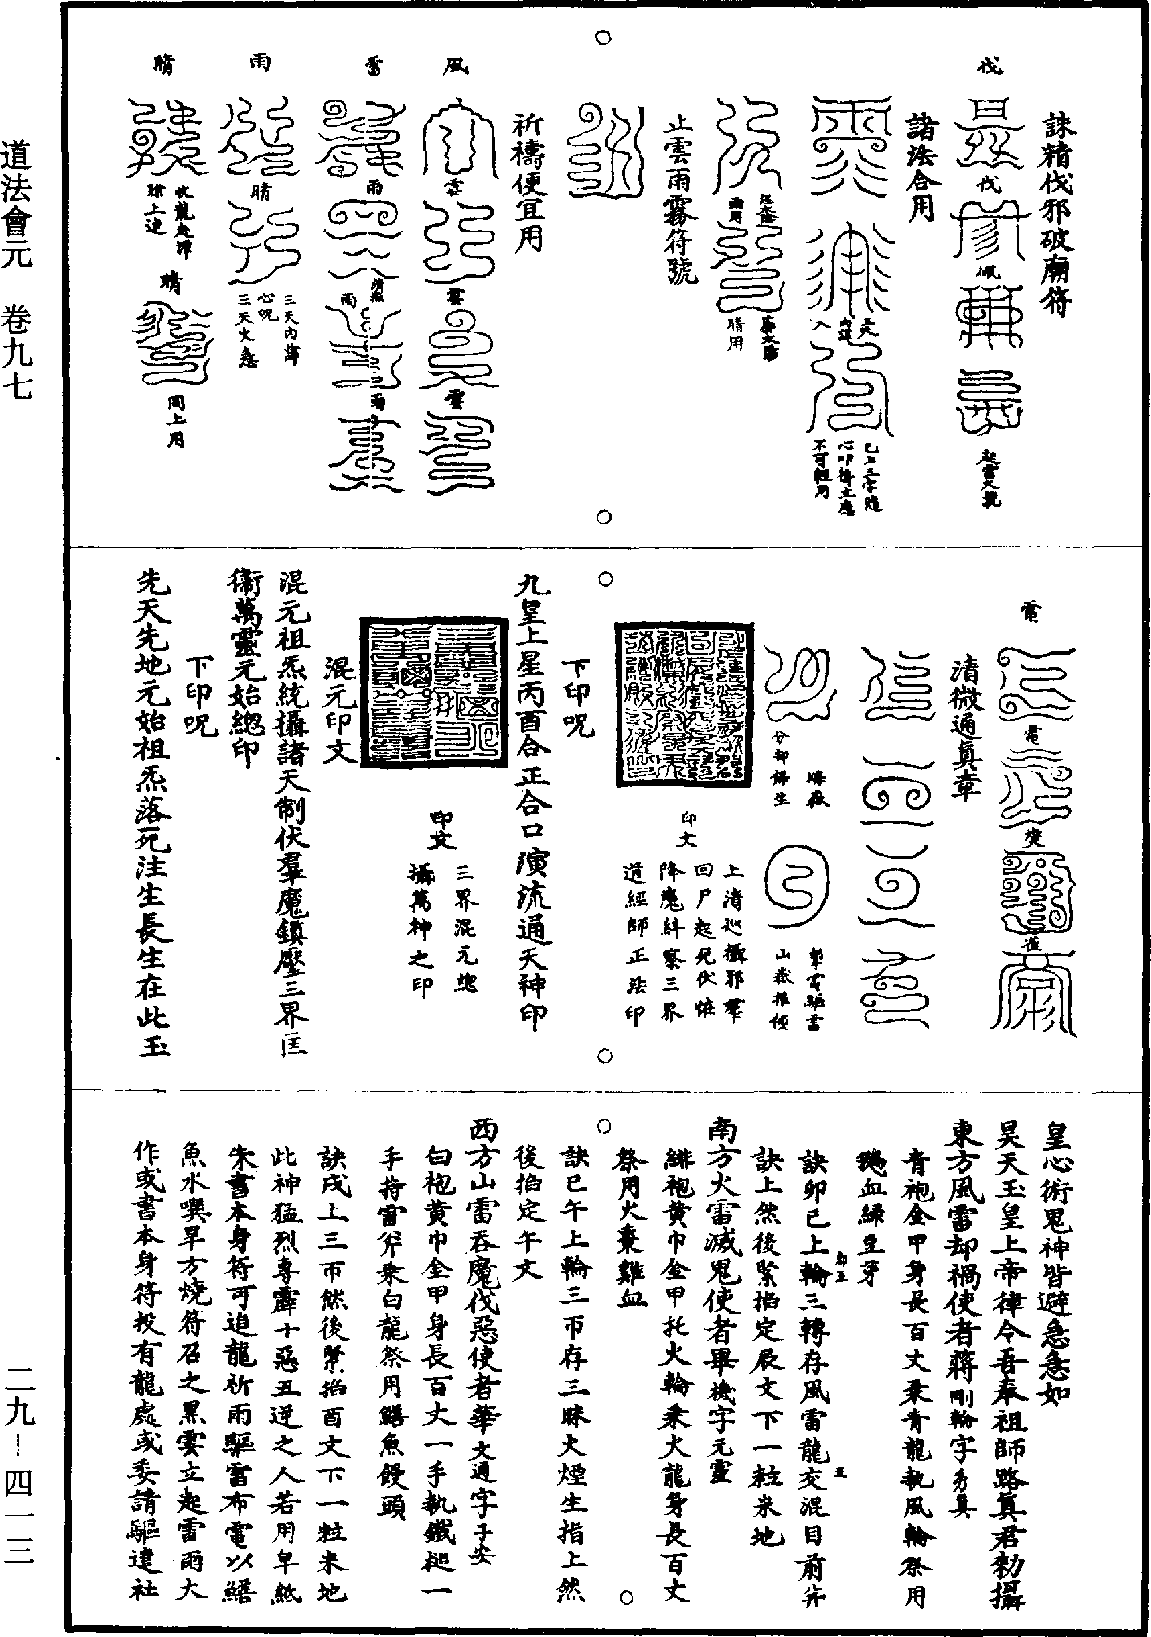 道法會元　卷九七
二九—四一三
誅精伐邪破廟符
伐
伐
諸法合用
止雲雨霧符號
晴用
祈禱便宜用
風
雲
雲
雲
雷
雨
雨
雨
雨
晴
三天內諱
心咒
三天火急
晴
收龍起潭
晴
同上用
電
電
清微通真章
印文
上清巡攝邪羣
回尸起死伏恠
降魔糾察三界
道經師正法印
下印呪
九皇上星丙酉合正合口演流通天神印
印文
三界混元總
攝萬神之印
混元印文
混元祖炁統攝諸天制伏羣魔鎮壓三界匡
衛萬靈元始總印
下印呪
先天先地元始祖炁落死注生長生在此玉
皇心術鬼神皆避急急如
昊天玉皇上帝律令吾奉祖師路真君勑攝
東方風雷却禍使者蔣剛輪字秀真
青袍金甲身長百丈乘青龍執風輪祭用
鵝血綠豆芽
訣卯巳上輪三轉存風雷龍交混目前
訣上然後緊掐定辰文下一粒米地
南方火雷滅鬼使者畢機字元靈
緋袍黃巾金甲托火輪乘火龍身長百丈
祭用火棗雞血
訣巳午上輪三帀存三昧火煙生指上然
後掐定午文
西方山雷吞魔伐惡使者華文通字子安
白袍黃巾金甲身長百丈一手執鐵搥一
手持雷斧乘白龍祭用鱔魚饅頭
訣戌上三帀然後緊掐酉文下一粒米地
此神猛烈專霹十惡五逆之人若用皁紙
朱書本身符可追龍祈雨驅雷布電以鱔
魚水噀旱方燒符召之黑雲立起雷雨大
作或書本身符投有龍處或委請驅逮社